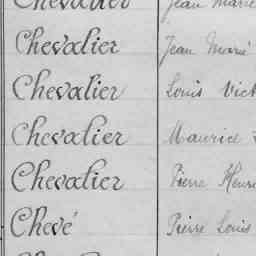 Chevalier Jean Marie
Chevalier Jean Marie
Chevalier Louis Vict
Chevalier Maurice
Chevalier Pierre Henri
Chevé Pierre Louis